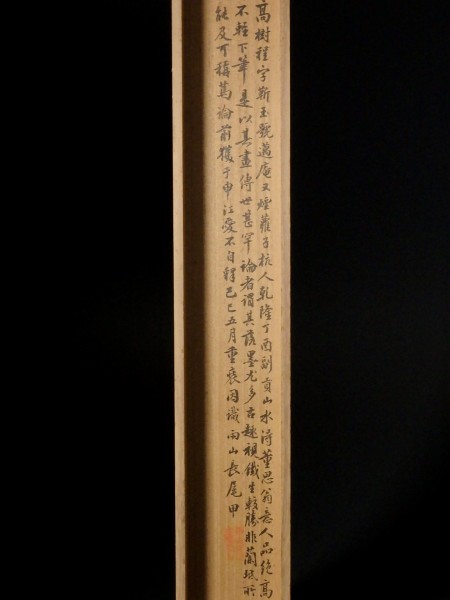 高樹程字蘄至號邁庵又烟蘿子杭人乾隆丁酉副貢山水得董思翁意人品絶高
不輕下筆是以其畫傳世甚罕論者謂其落墨尤多古趣視鐵生較勝非蘭坻所
能及可稱篤論前獲于申江愛不自釋己巳五月重裝因識雨山長尾甲